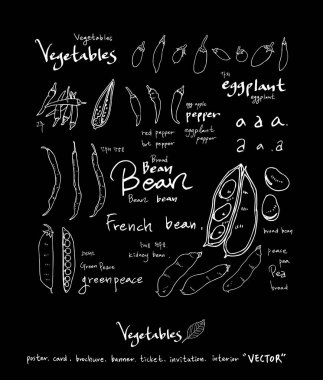 Vegetables
Vegetables
가지
eggplant
eggplant
egg apple
pepper
고추
red pepper
hot pepper
eggplant
pepper
a a.
a. a
Broad
Bean
Bean
Bean bean
French bean.
broad bean
peace
pea
Pea
broad
kidney bean
Green Peace
greenpeace
Vegetables
poster. card. brochure. banner. ticket. invitation. interior "VECTOR"